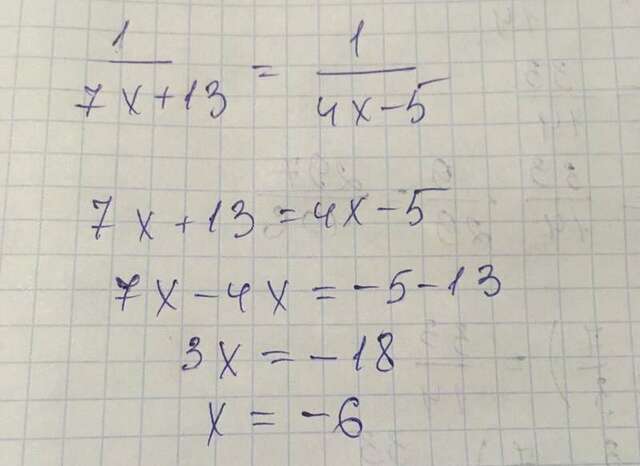 1/(7x+13) = 1/(4x-5)
7x+13=4x-5
7x-4x=-5-13
3x=-18
x=-6